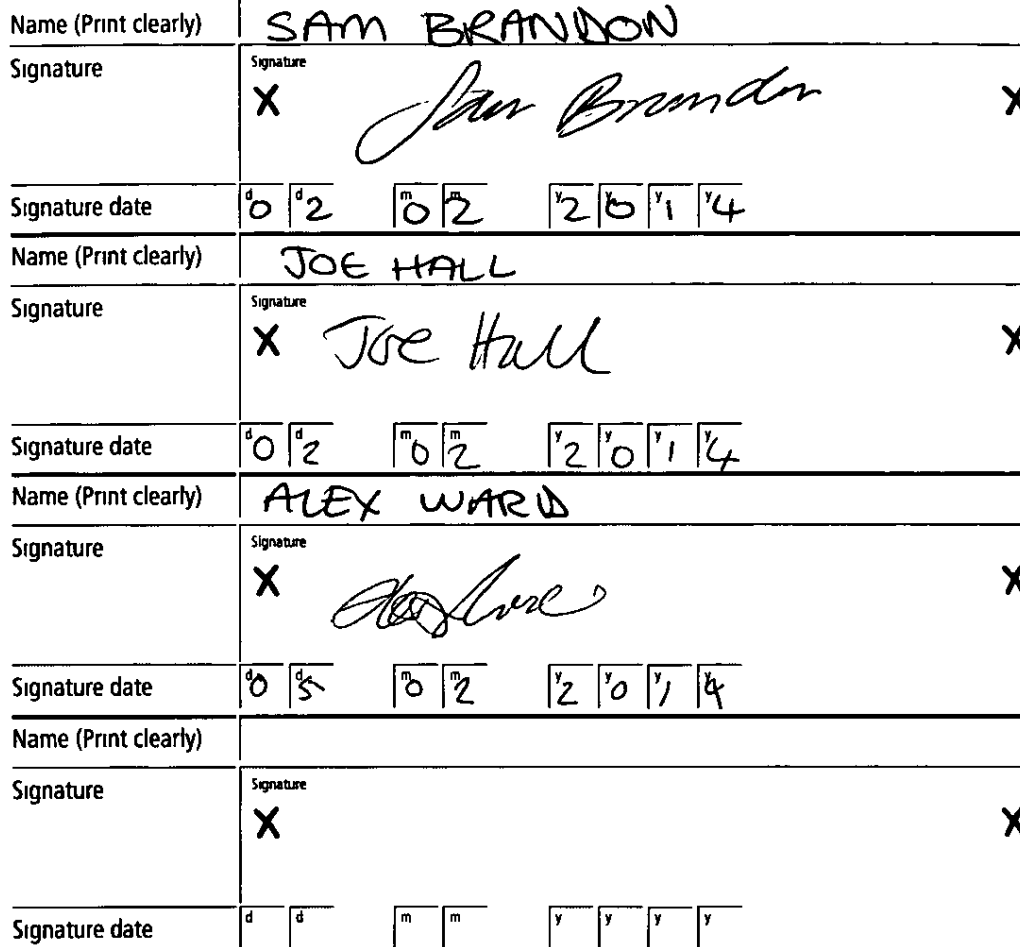 Name (Print clearly) SAM BRANDON
Signature Signature
X Sam Brandon X
Signature date d0 d2 m0 m2 y2 y0 y1 y4
Name (Print clearly) JOE HALL
Signature Signature
X Joe Hall X
Signature date d0 d2 m0 m2 y2 y0 y1 y4
Name (Print clearly) ALEX WARD
Signature Signature
X X
Signature date d0 d5 m0 m2 y2 y0 y1 y4
Name (Print clearly)
Signature Signature
X X
Signature date d d m m y y y y